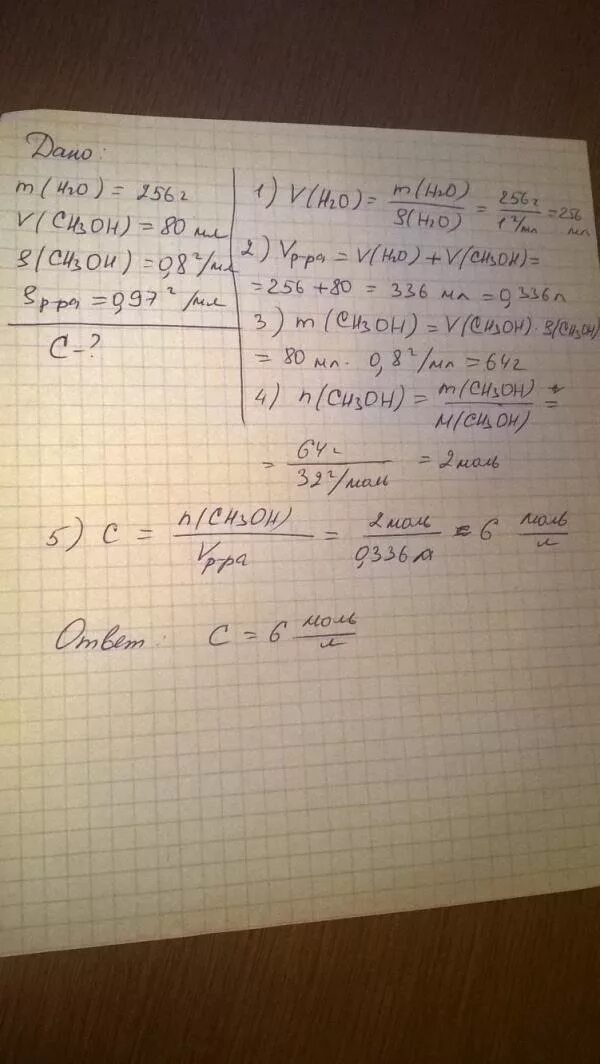 Дано:
m(H2O) = 256 г
V(CH3OH) = 80 мл
ρ(CH3OH) = 0,8 г/мл
ρр-ра = 0,97 г/мл
C-?
1) V(H2O) = m(H2O)/ρ(H2O) = 256 г/1 г/мл = 256 мл
2) Vр-ра = V(H2O) + V(CH3OH) =
= 256 + 80 = 336 мл = 0,336 л
3) m(CH3OH) = V(CH3OH) · ρ(CH3OH)
= 80 мл · 0,8 г/мл = 64 г
4) n(CH3OH) = m(CH3OH)/M(CH3OH) =
= 64 г/32 г/моль = 2 моль
5) C = n(CH3OH)/Vр-ра = 2 моль/0,336 л = 6 моль/л
Ответ: C = 6 моль/л